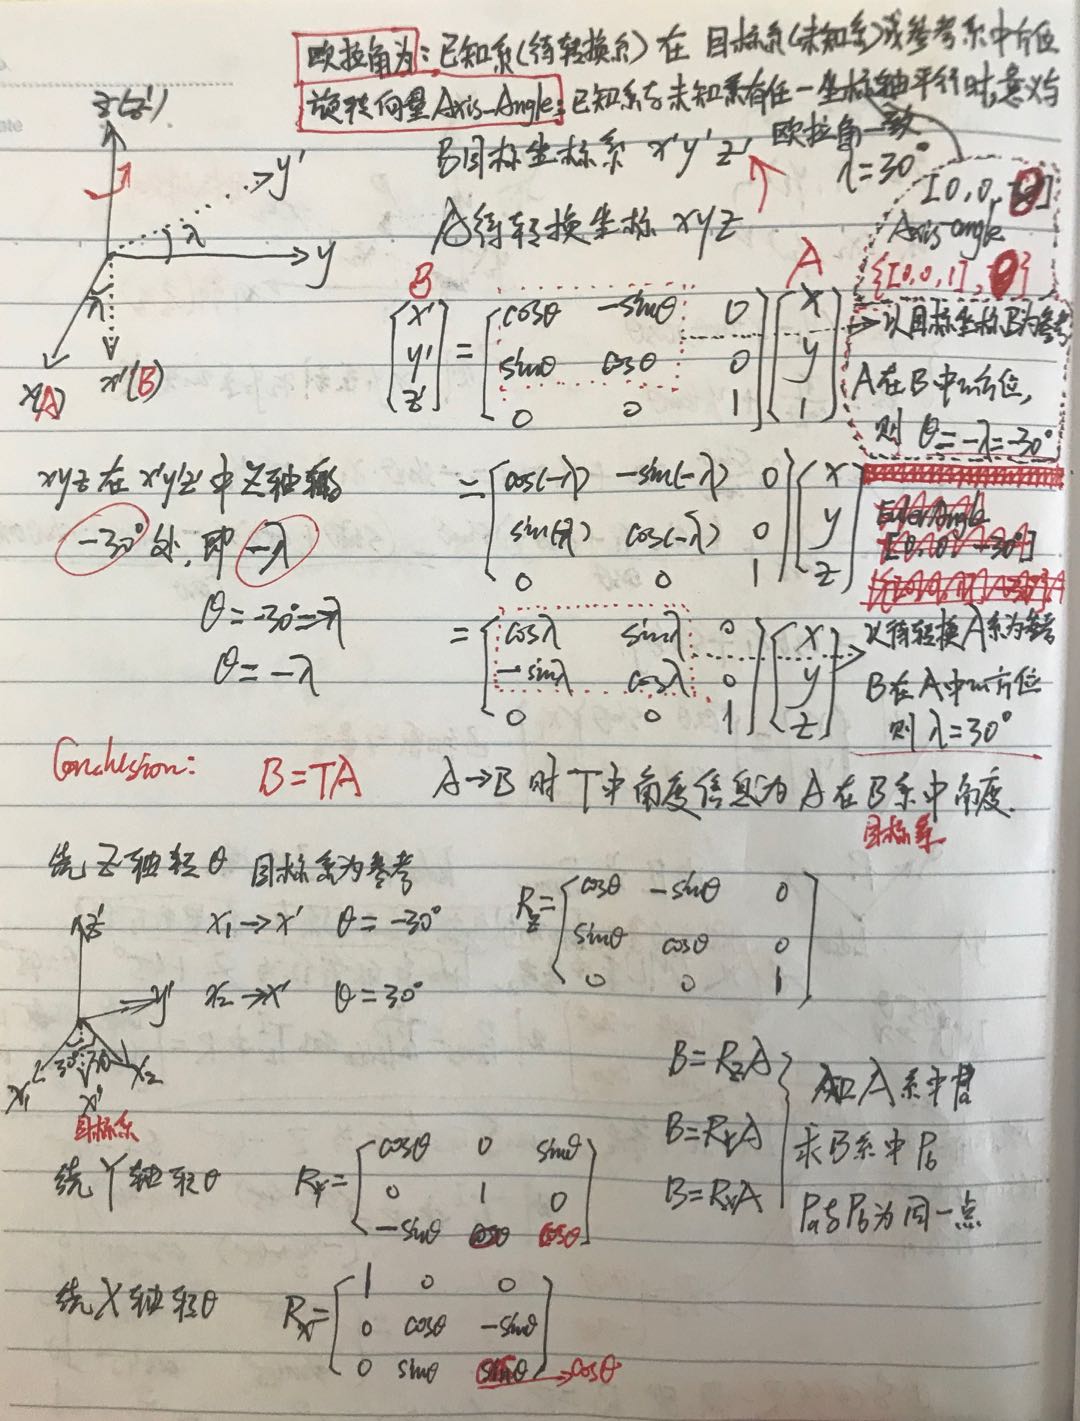 欧拉角为：已知系(待转换系) 在 目标系(未知系)或参考系中方位
旋转向量Axis-Angle：已知系与未知系有任一坐标轴平行时,意义与
欧拉角一致
B目标坐标系 x'y'z'
λ=30°
A待转换坐标 xyz
[0,0,θ]
Axis angle
{[0,0,1],θ}
z(z')
y'
λ
y
λ
x(A)
x'(B)
B
A
[x' y' z'] = [cosθ -sinθ 0
sinθ cosθ 0
0 0 1] [x y 1]
以目标坐标B为参考
A在B中的方位,
则 θ=-λ=-30°
xyz在x'y'z'中Z轴
-30°处,即 -λ
θ=-30°=-λ
θ=-λ
= [cos(-λ) -sin(-λ) 0
sin(-λ) cos(-λ) 0
0 0 1] [x y z]
= [cosλ sinλ 0
-sinλ cosλ 0
0 0 1] [x y z]
以待转换A系为参考
B在A中的方位
则 λ=30°
Conclusion: B=TA A→B 时 T中角度信息为 A在B系中角度.
目标系
绕Z轴转θ 目标系为参考
x₁→x' θ=-30°
x₂→x' θ=30°
Rz= [cosθ -sinθ 0
sinθ cosθ 0
0 0 1]
z'
y'
30° 30
x₁ x₂
x'
目标系
B=RzA
B=RyA
B=RxA
知A系中Pa
求B系中Pb
Pa与Pb为同一点
绕Y轴转θ Ry= [cosθ 0 sinθ
0 1 0
-sinθ cosθ]
绕X轴转θ Rx= [1 0 0
0 cosθ -sinθ
0 sinθ →cosθ]